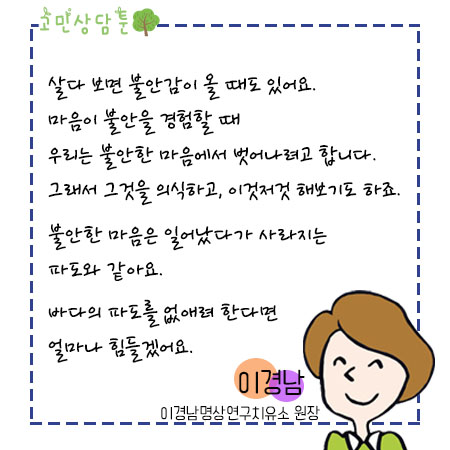 고민상담툰
살다 보면 불안감이 올 때도 있어요.
마음이 불안을 경험할 때
우리는 불안한 마음에서 벗어나려고 합니다.
그래서 그것을 의식하고, 이것저것 해보기도 하죠.
불안한 마음은 일어났다가 사라지는
파도와 같아요.
바다의 파도를 없애려 한다면
얼마나 힘들겠어요.
이경남
이경남명상연구치유소 원장